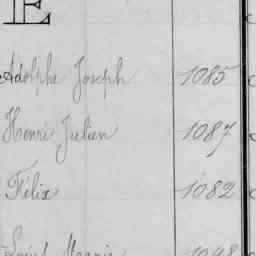 E
Adolphe Joseph 1085
Henri Julien 1087
Félix 1082